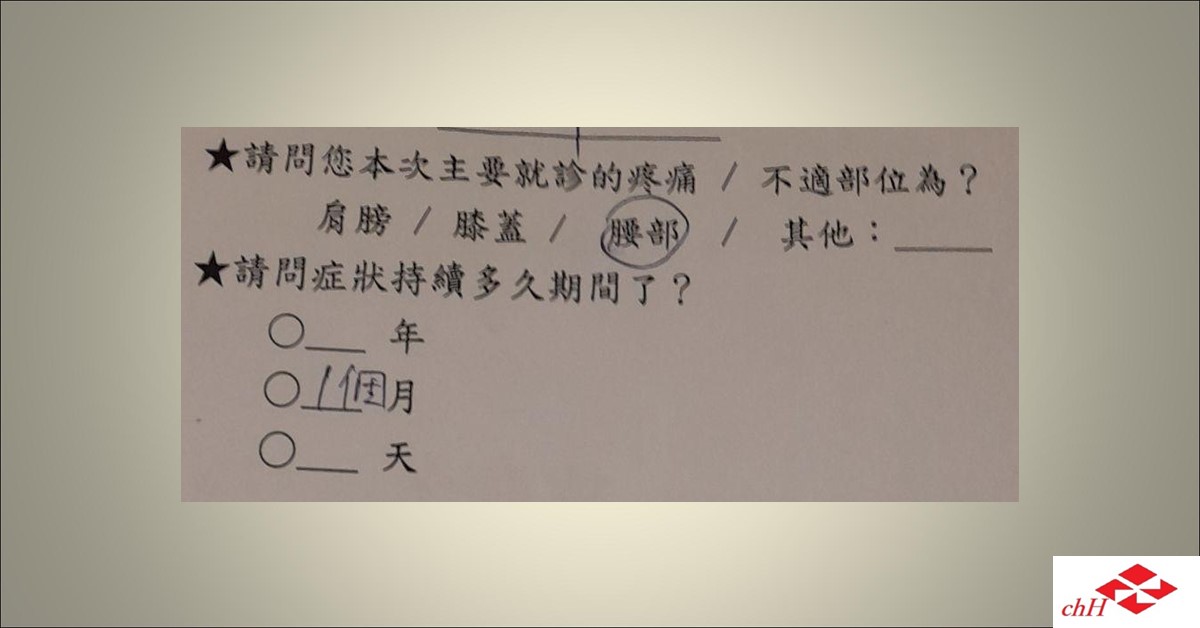 ★請問您本次主要就診的疼痛 / 不適部位為？
肩膀 / 膝蓋 / 腰部 / 其他：______
★請問症狀持續多久期間了？
○___ 年
○1個月
○___ 天
chH